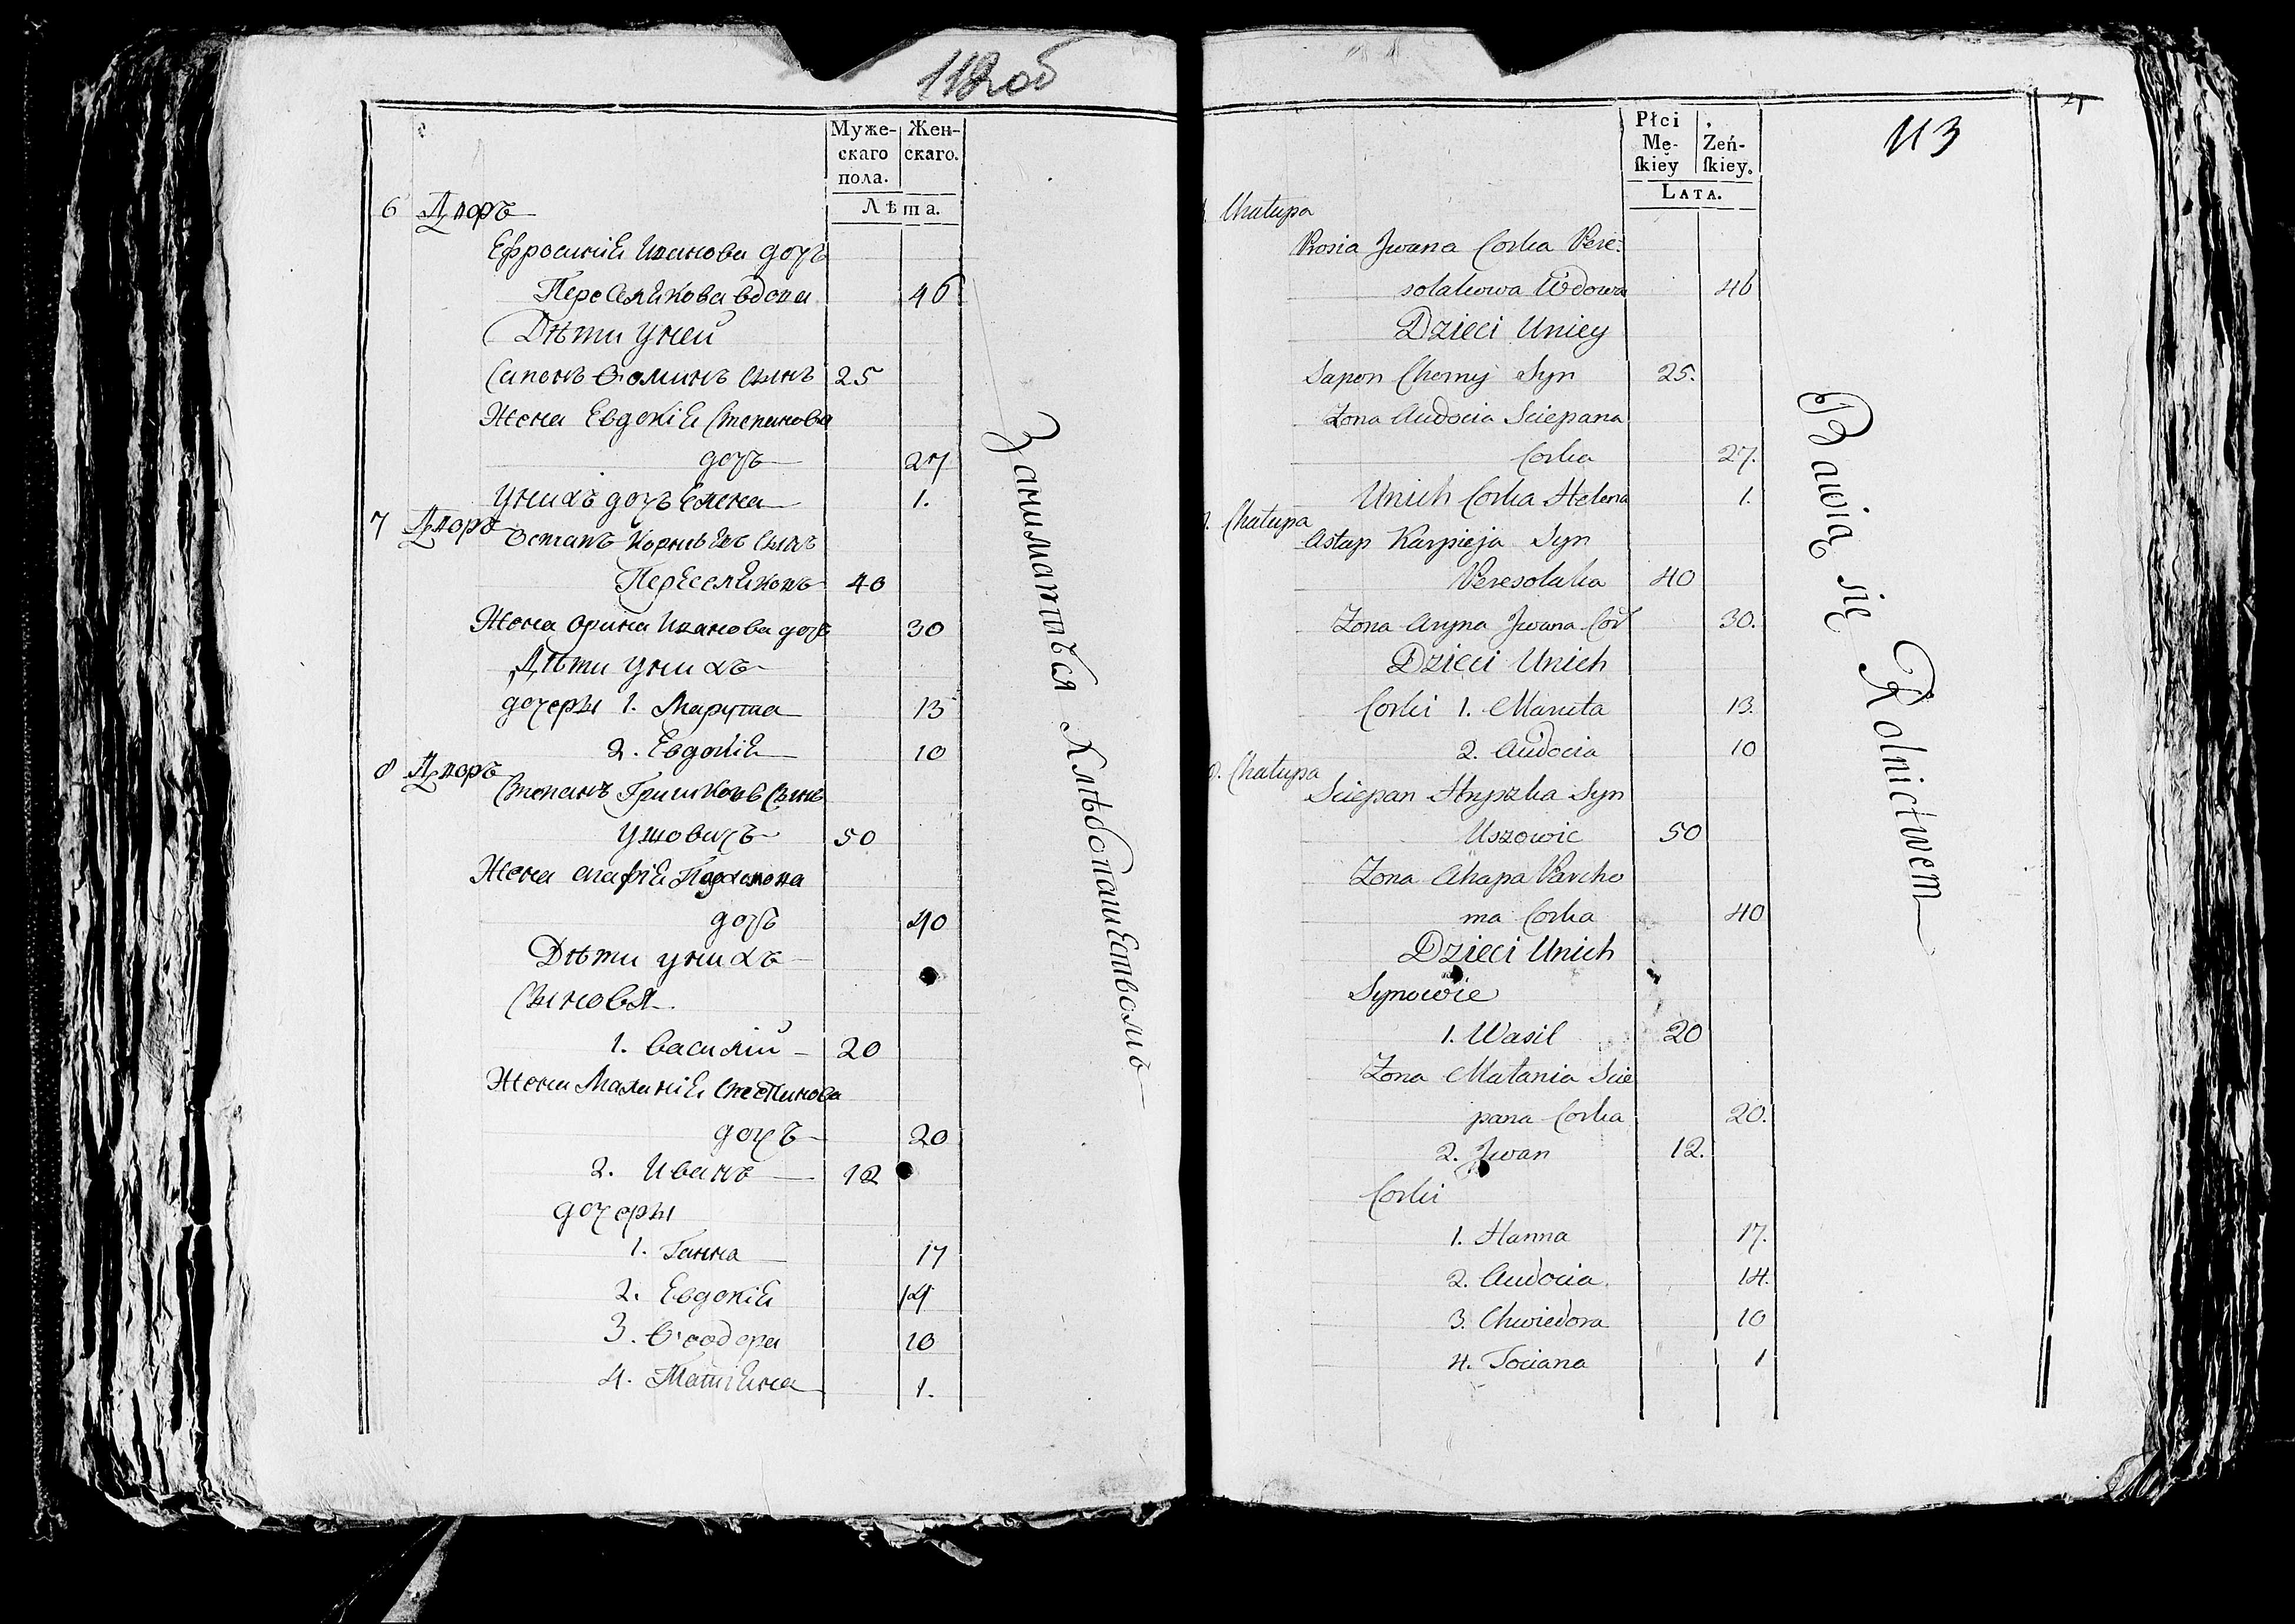 112об
Муже-
скаго
пола.
Жен-
скаго.
Лѣта.
6 Дворъ
Ефросинія Иванова дочь
Переселякова вдова 46
Дѣти у ней
Сапонъ Ѳоминъ сынъ 25
Жена Евдокія Степанова
дочь 27
У нихъ дочь Елена 1.
7 Дворъ
Остапъ Корнѣевъ сынъ
Переселяковъ 40
Жена Орина Иванова дочь 30
Дѣти у нихъ
дочеры 1. Марута 13
2. Евдокія 10
8 Дворъ
Степанъ Гришковъ сынъ
Ушовичъ 50
Жена Агафія Пархомова
дочь 40
Дѣти у нихъ
Сыновья
1. Василій 20
Жена Маланія Степанова
дочь 20
2. Иванъ 12
дочеры
1. Ганна 17
2. Евдокія 14
3. Ѳеодора 10
4. Татіяна 1.
Занимаютъся Хлѣбопашествомъ
113
Płci
Mę-
skiey
Zeń-
skiey.
LATA.
Chałupa
Prosia Jwana Corka Pere-
solakowa Wdowa 46
Dzieci Uniey
Sapon Chomy Syn 25.
Zona Audocia Sciepana
Corka 27.
Unich Corka Helena 1.
Chałupa
Astap Karpieja Syn
Peresolaka 40
Zona Aryna Jwana Cor 30.
Dzieci Unich
Corki 1. Maruta 13.
2. Audocia 10
Chałupa
Sciepan Hryszka Syn
Uszowic 50
Zona Ahapa Parcho
ma Corka 40
Dzieci Unich
Synowie
1. Wasil 20
Zona Małania Scie
pana Corka 20.
2. Jwan 12.
Corki
1. Hanna 17.
2. Audocia 14.
3. Chwiedora 10
4. Tociana 1
Bawią się Rolnictwem